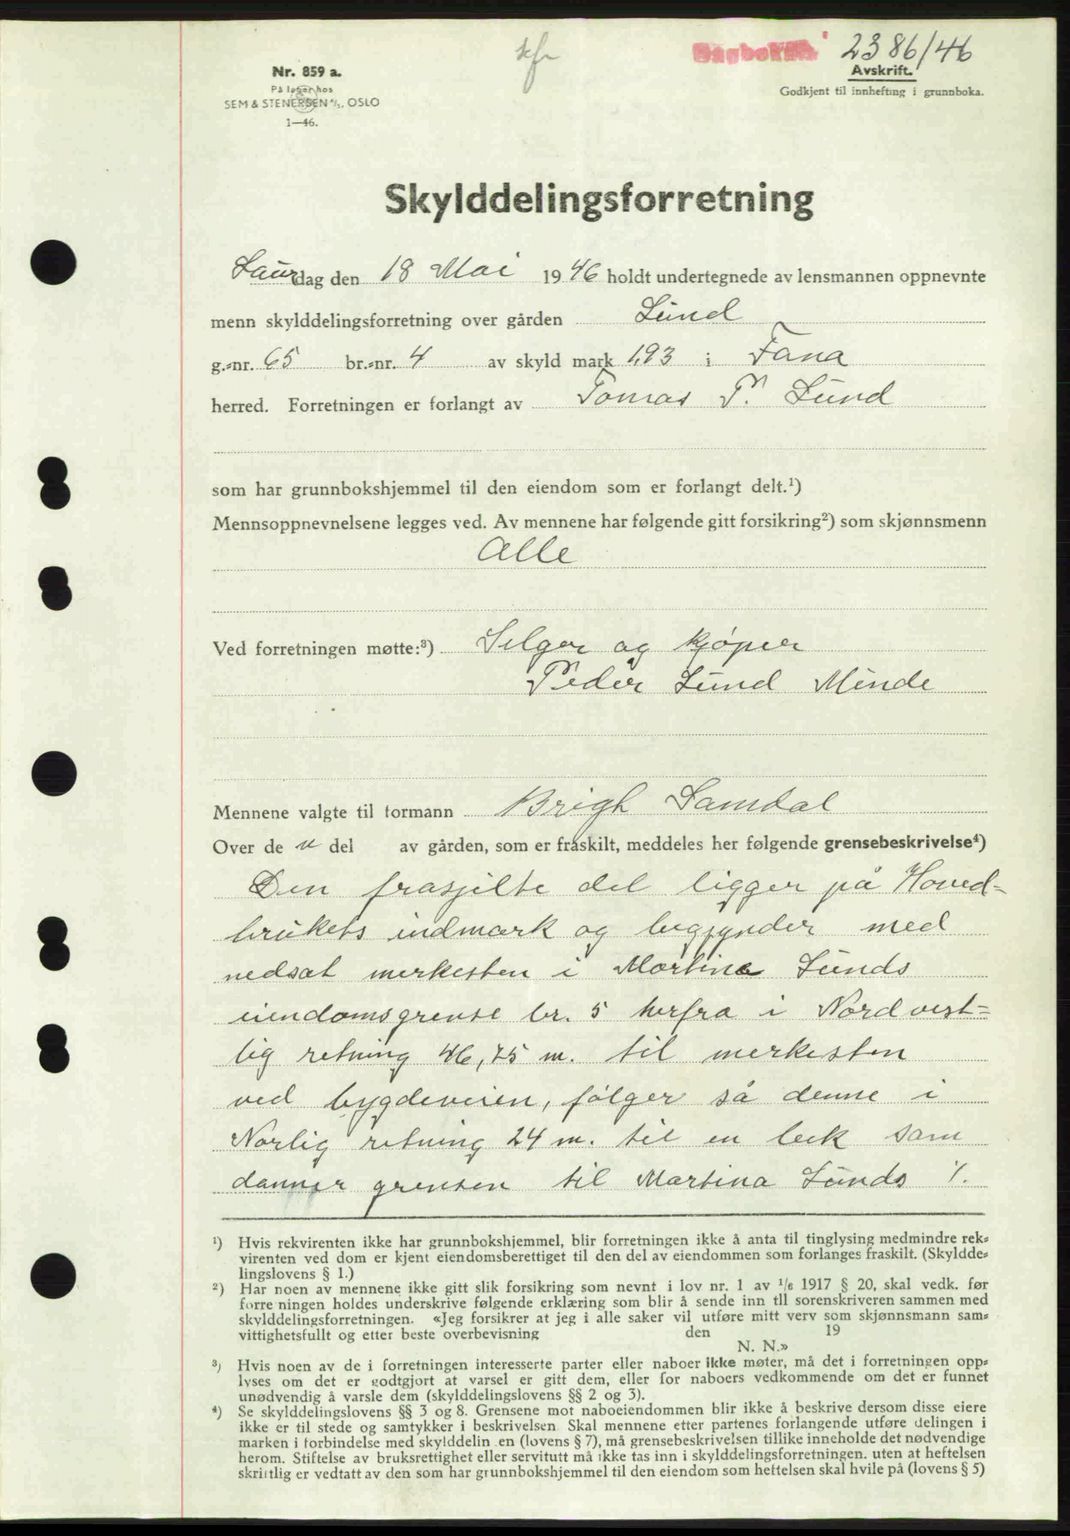 Dagbok nr. 2386/46
Avskrift.
Godkjent til innhefting i grunnboka.
Nr. 859 a.
På lager hos
SEM & STENERSEN A/S, OSLO
1—46.
Skylddelingsforretning
Laurdag den 18 Mai 1946 holdt undertegnede av lensmannen oppnevnte
menn skylddelingsforretning over gården Lund
g.-nr. 65 br.-nr. 4 av skyld mark 1,93 i Fana
herred. Forretningen er forlangt av Tomas P. Lund
som har grunnbokshjemmel til den eiendom som er forlangt delt.¹)
Mennsoppnevnelsene legges ved. Av mennene har følgende gitt forsikring²) som skjønnsmenn
Alle
Ved forretningen møtte:³) Selger og kjøper
Peder Lund Minde
Mennene valgte til formann Brigt Samdal
Over de n del av gården, som er fraskilt, meddeles her følgende grensebeskrivelse⁴)
Den frasjilte del ligger på Hoved-
brukets indmark og begjynder med
nedsat merkesten i Martine Lunds
eiendomsgrense br. 5 herfra i Nordvest-
lig retning 46,75 m. til merkesten
ved bygdeveien, følger så denne i
Norlig retning 24 m. til en bek som
danner grensen til Martina Lunds %.
¹) Hvis rekvirenten ikke har grunnbokshjemmel, blir forretningen ikke å anta til tinglysing medmindre rek-
virenten ved dom er kjent eiendomsberettiget til den del av eiendommen som forlanges fraskilt. (Skyldde-
lingslovens § 1.)
²) Har noen av mennene ikke gitt slik forsikring som nevnt i lov nr. 1 av ¹/₆ 1917 § 20, skal vedk. før
forre ningen holdes underskrive følgende erklæring som blir å sende inn til sorenskriveren sammen med
skylddelingsforretningen. «Jeg forsikrer at jeg i alle saker vil utføre mitt verv som skjønnsmann sam-
vittighetsfullt og etter beste overbevisning den 19
N. N.»
³) Hvis noen av de i forretningen interesserte parter eller naboer ikke møter, må det i forretningen opp-
lyses om det er godtgjort at varsel er gitt dem, eller for naboers vedkommende om det er funnet
unødvendig å varsle dem (skylddelingslovens §§ 2 og 3).
⁴) Se skylddelingslovens §§ 3 og 8. Grensene mot naboeiendommen blir ikke å beskrive dersom disse eiere
ikke er til stede og samtykker i beskrivelsen Skal mennene etter partenes forlangende utføre delingen i
marken i forbindelse med skylddelin en (lovens § 7), må grensebeskrivelsen tillike inneholde det nødvendige
herom. Stiftelse av bruksrettighet eller servitutt må ikke tas inn i skylddelingsforretningen. uten at heftelsen
skriftlig er vedtatt av den som har grunnbokshjemmel til den eiendom som heftelsen skal hvile på (lovens § 5)